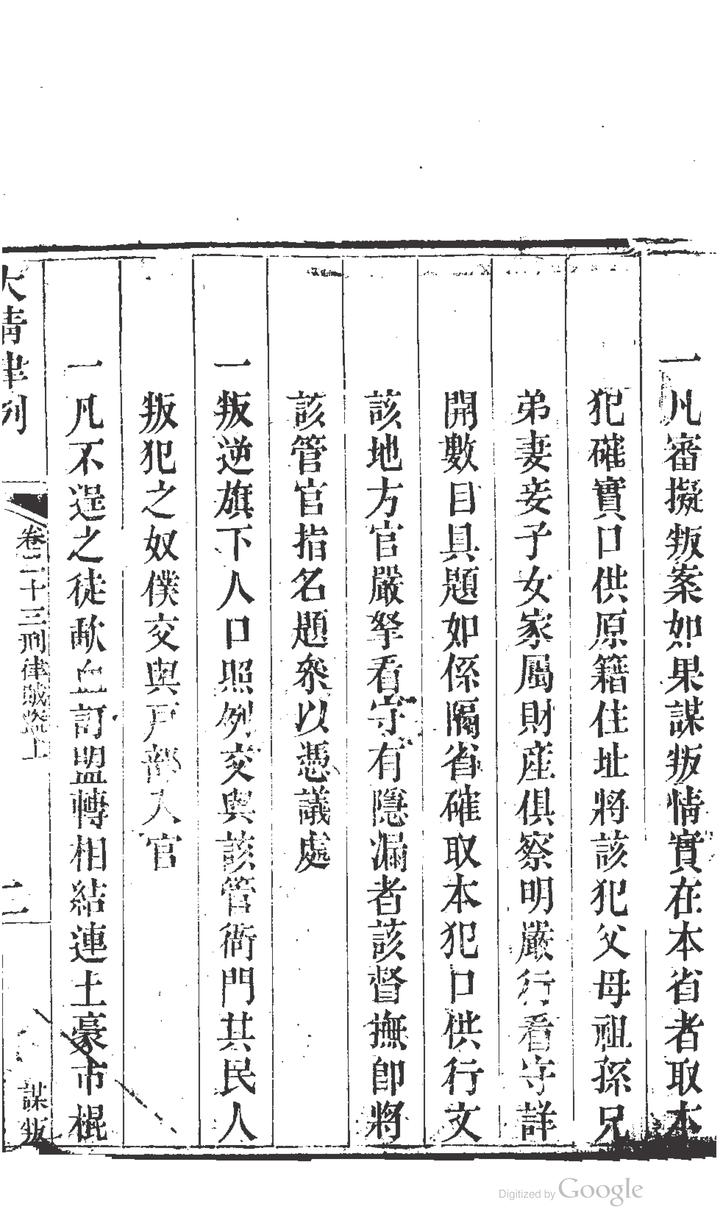 一凡審擬叛案如果謀叛情實在本省者取本
犯確實口供原籍住址將該犯父母祖孫兄
弟妻妾子女家屬財產俱察明嚴行看守詳
開數目具題如係隔省確取本犯口供行文
該地方官嚴拏看守有隱漏者該督撫即將
該管官指名題叅以憑議處
一叛逆旗下人口照例交與該管衙門其民人
叛犯之奴僕交與戸部入官
一凡不逞之徒歃血訂盟轉相結連土豪市棍
大清律例
卷二十三刑律賊盜上
二
謀叛
Digitized by Google